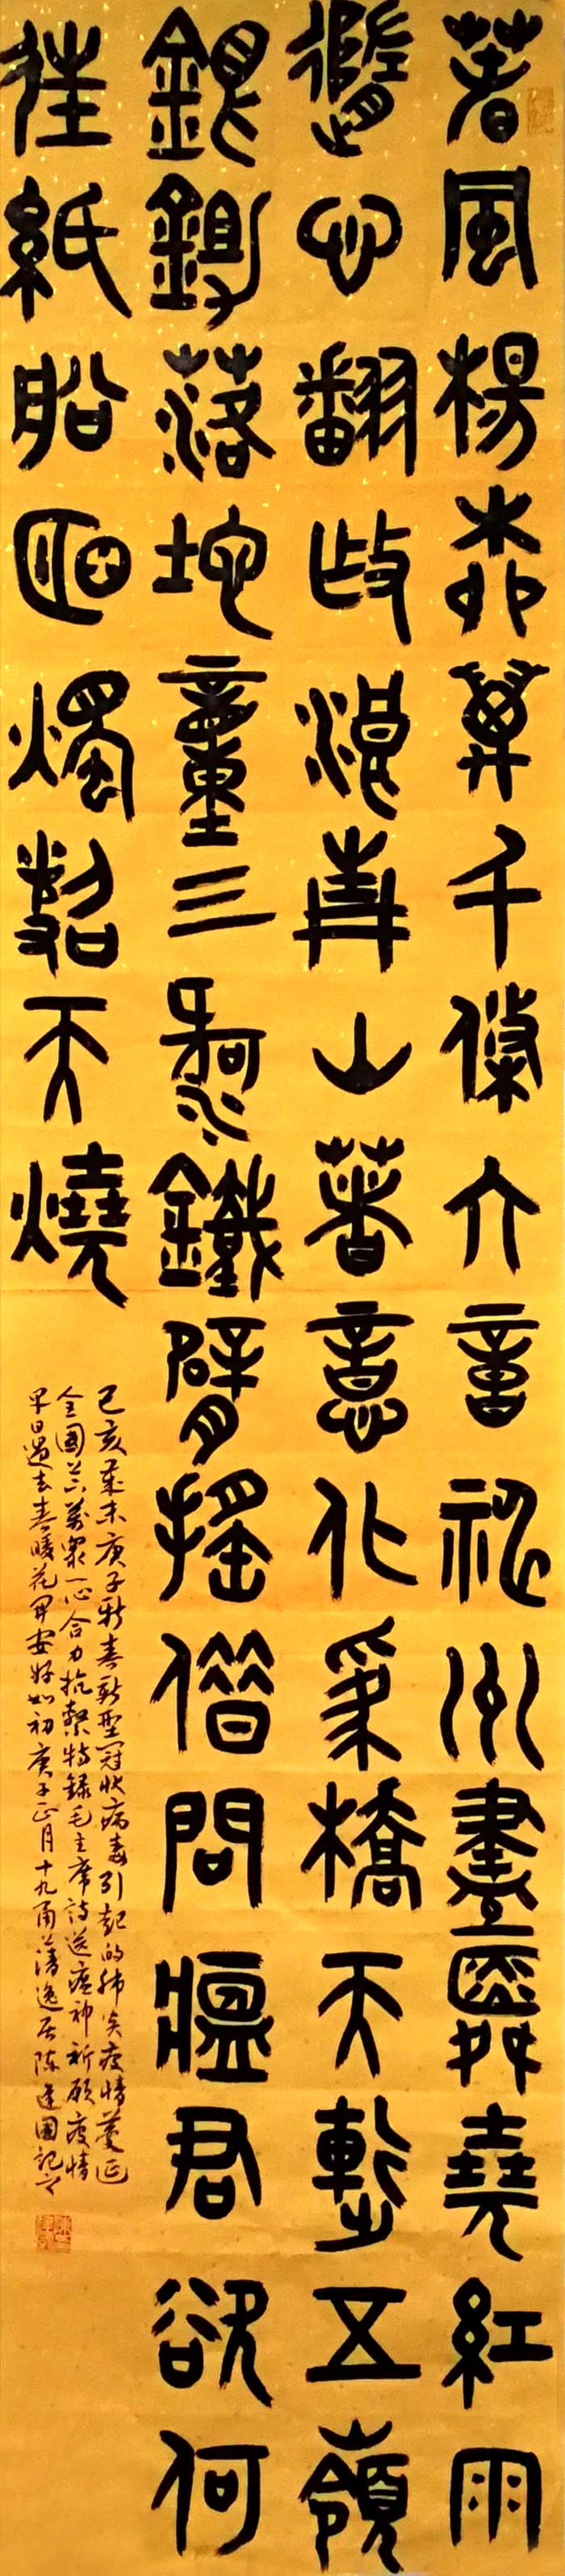 春風楊柳萬千條六億神州盡舜堯紅雨
隨心翻作浪青山著意化爲橋天連五嶺
銀鋤落地動三河鐵臂搖借問瘟君欲何
往紙船明燭照天燒
己亥歲末庚子新春新型冠狀病毒引起的肺炎疫情蔓延
全國上下萬衆一心合力抗擊特録毛主席詩送瘟神祈願疫情
早日過去春暖花開安好如初庚子正月十九甬逸居陳達國記之